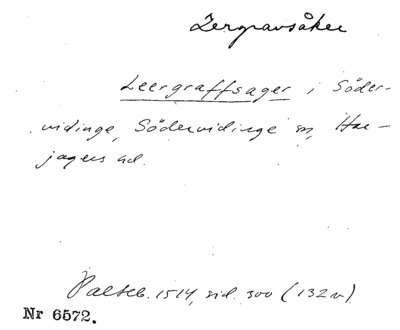 Lergravsåker
Leergraffsager i Söder-
vidinge, Södervidinge sn, Har-
jagers hd.
Palteb. 1514, sid. 300 (132 v).
Nr 6572.